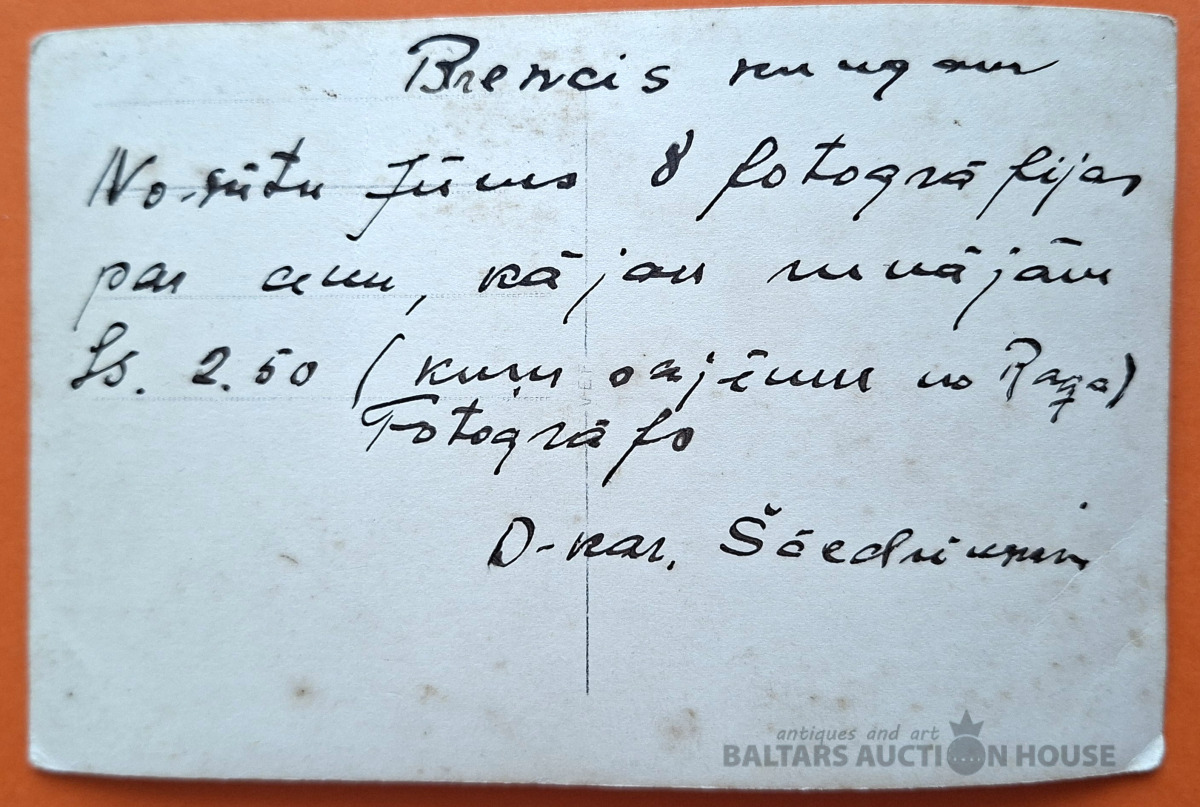 Brencis kungam
No-sūtu Jūms 8 fotogrāfijas
par cenu, kājau runājām
Ls. 2.50 (kuŗu saņēmu no Raga)
Fotogrāfs
D-kar. Ščedriņš
VEF
antiques and art
BALTARS AUCTION HOUSE